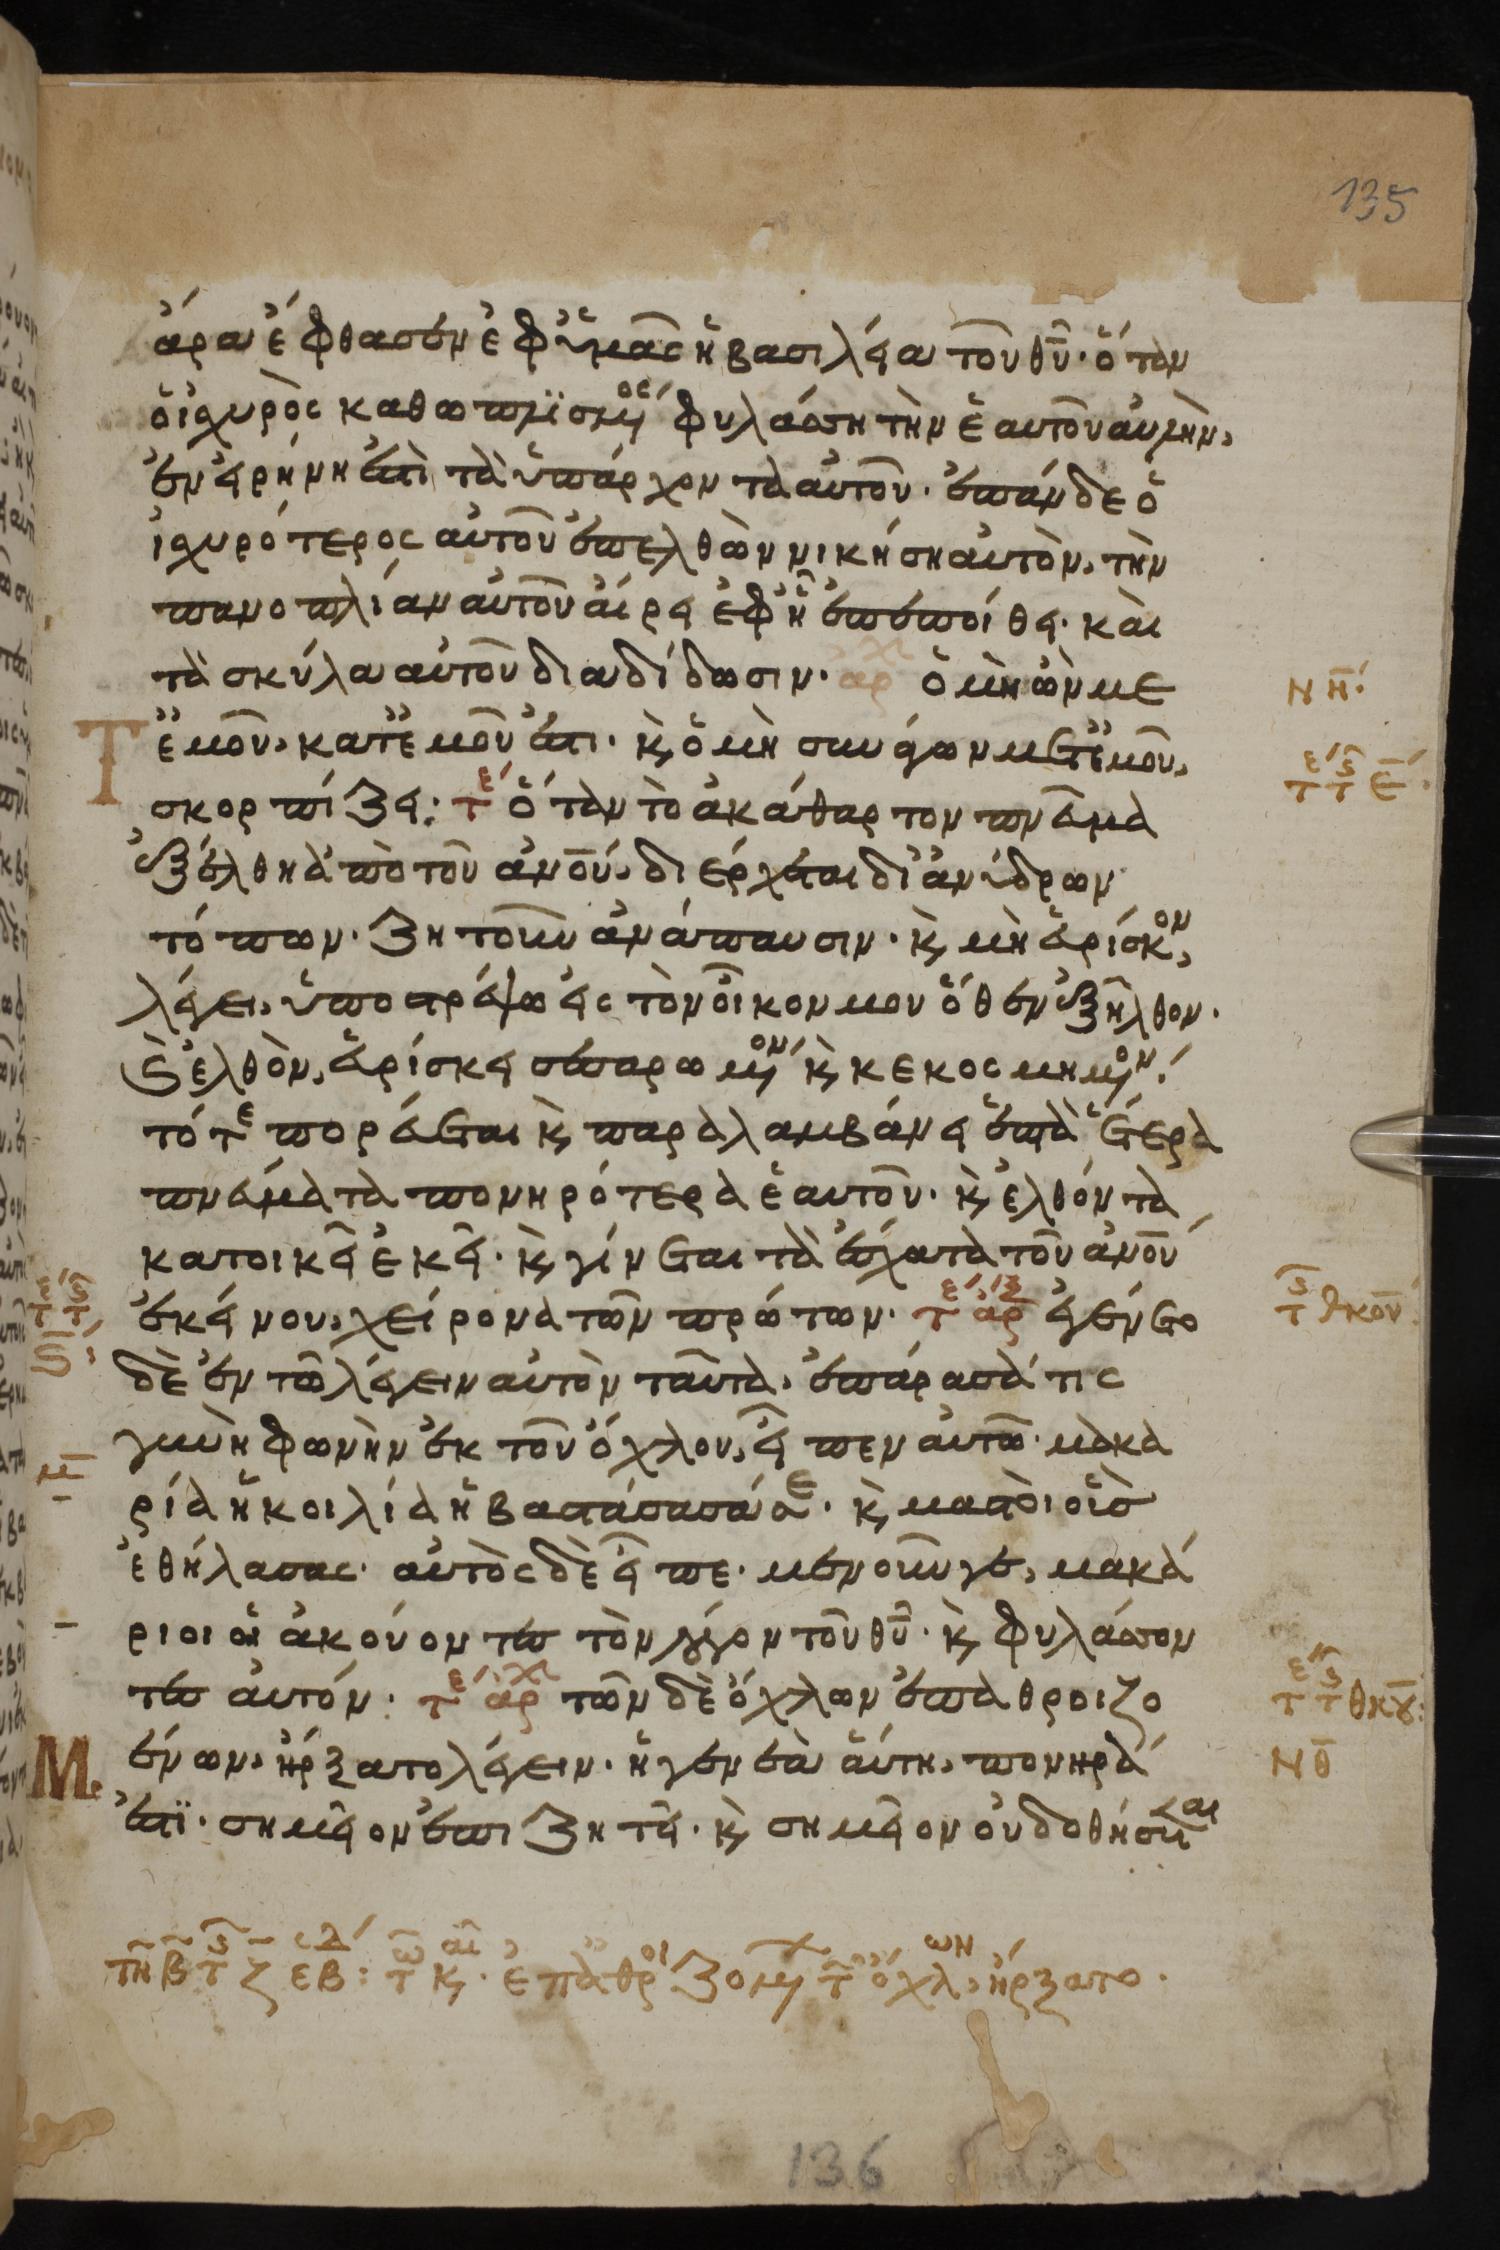 135
ἄρα ἔφθασεν ἐφ' ὑμᾶς ἡ βασιλεία τοῦ θῦ· ὅταν
ὁ ἰσχυρὸς καθωπλισμένος φυλάσση τὴν ἑαυτοῦ αὐλὴν,
ἐν εἰρήνη ἐστὶ τὰ ὑπάρχοντα αὐτοῦ· ἐπὰν δε ὁ
ἰσχυρότερος αὐτοῦ ἐπελθὼν νικήση αὐτὸν, τὴν
πανοπλίαν αὐτοῦ αἴρει ἐφ' ᾗ ἐπεποίθει· καὶ
τὰ σκῦλα αὐτοῦ διαδίδωσιν· ἀρχ ὁ μὴ ὢν με
Τ ἐμοῦ, κατ' ἐμοῦ ἐστι· κ ὁ μὴ συνάγων μετ' ἐμοῦ,
σκορπίζει: τε ὅταν τὸ ἀκάθαρτον πνεῦμα
ἐξέλθη ἀπὸ τοῦ ἀνοῦ, διέρχεται δι' ἀνύδρων
τόπων· ζητοῦν ἀνάπαυσιν· κ μὴ εὑρίσκον,
λέγει, ὑποστρέψω εἰς τὸν οἶκον μου ὅθεν ἐξῆλθον·
κ ἐλθὸν, εὑρίσκει σεσαρωμένον κ κεκοσμημένον·
τότε πορεύεται κ παραλαμβάνει ἑπτὰ ἕτερα
πνεύματα πονηρότερα ἑαυτοῦ· κ ἐλθόντα
κατοικεῖ ἐκεῖ· κ γίνεται τὰ ἔσχατα τοῦ ἀνοῦ
ἐκείνου, χείρονα τῶν πρώτων· τε ἀρξ ἐγένετο
δὲ ἐν τῶ λέγειν αὐτὸν ταῦτα, ἐπάρασά τις
γυνὴ φωνὴν ἐκ τοῦ ὄχλου, εἶπεν αὐτῶ· μακα
ρία ἡ κοιλία ἡ βαστάσασά σε· κ μαστοὶ οἓς
ἐθήλασας· αὐτὸς δὲ εἶπε· μενοῦν γε, μακά
ριοι οἱ ἀκούοντες τὸν λόγον τοῦ θῦ· κ φυλάσσον
τες αὐτόν: τε ἀρχ τῶν δὲ ὄχλων ἐπαθροιζο
Μ ένων, ἤρξατο λέγειν· ἡ γενεὰ αὕτη, πονηρά
ἐστϊ· σημεῖον ἐπιζητεῖ· κ σημεῖον οὐ δοθήσεται
τῆ β τ ζ εβδ: τω κ· ἐπαθροιζομ τ ὄχλων, ἤρξατο·
136